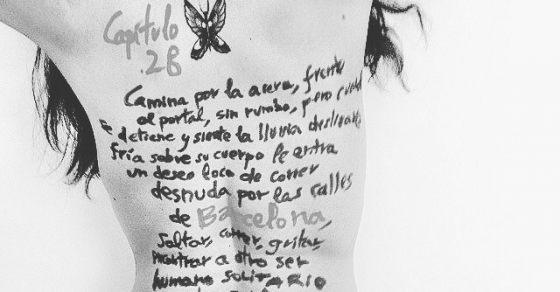 Capítulo
.28
Camina por la acera, frente
al portal, sin rumbo, pero cuando
se detiene y siente la lluvia deslizarse
fría sobre su cuerpo le entra
un deseo loco de correr
desnuda por las calles
de Barcelona,
saltar, correr, gritar,
mostrar a otro ser
humano solitARIO